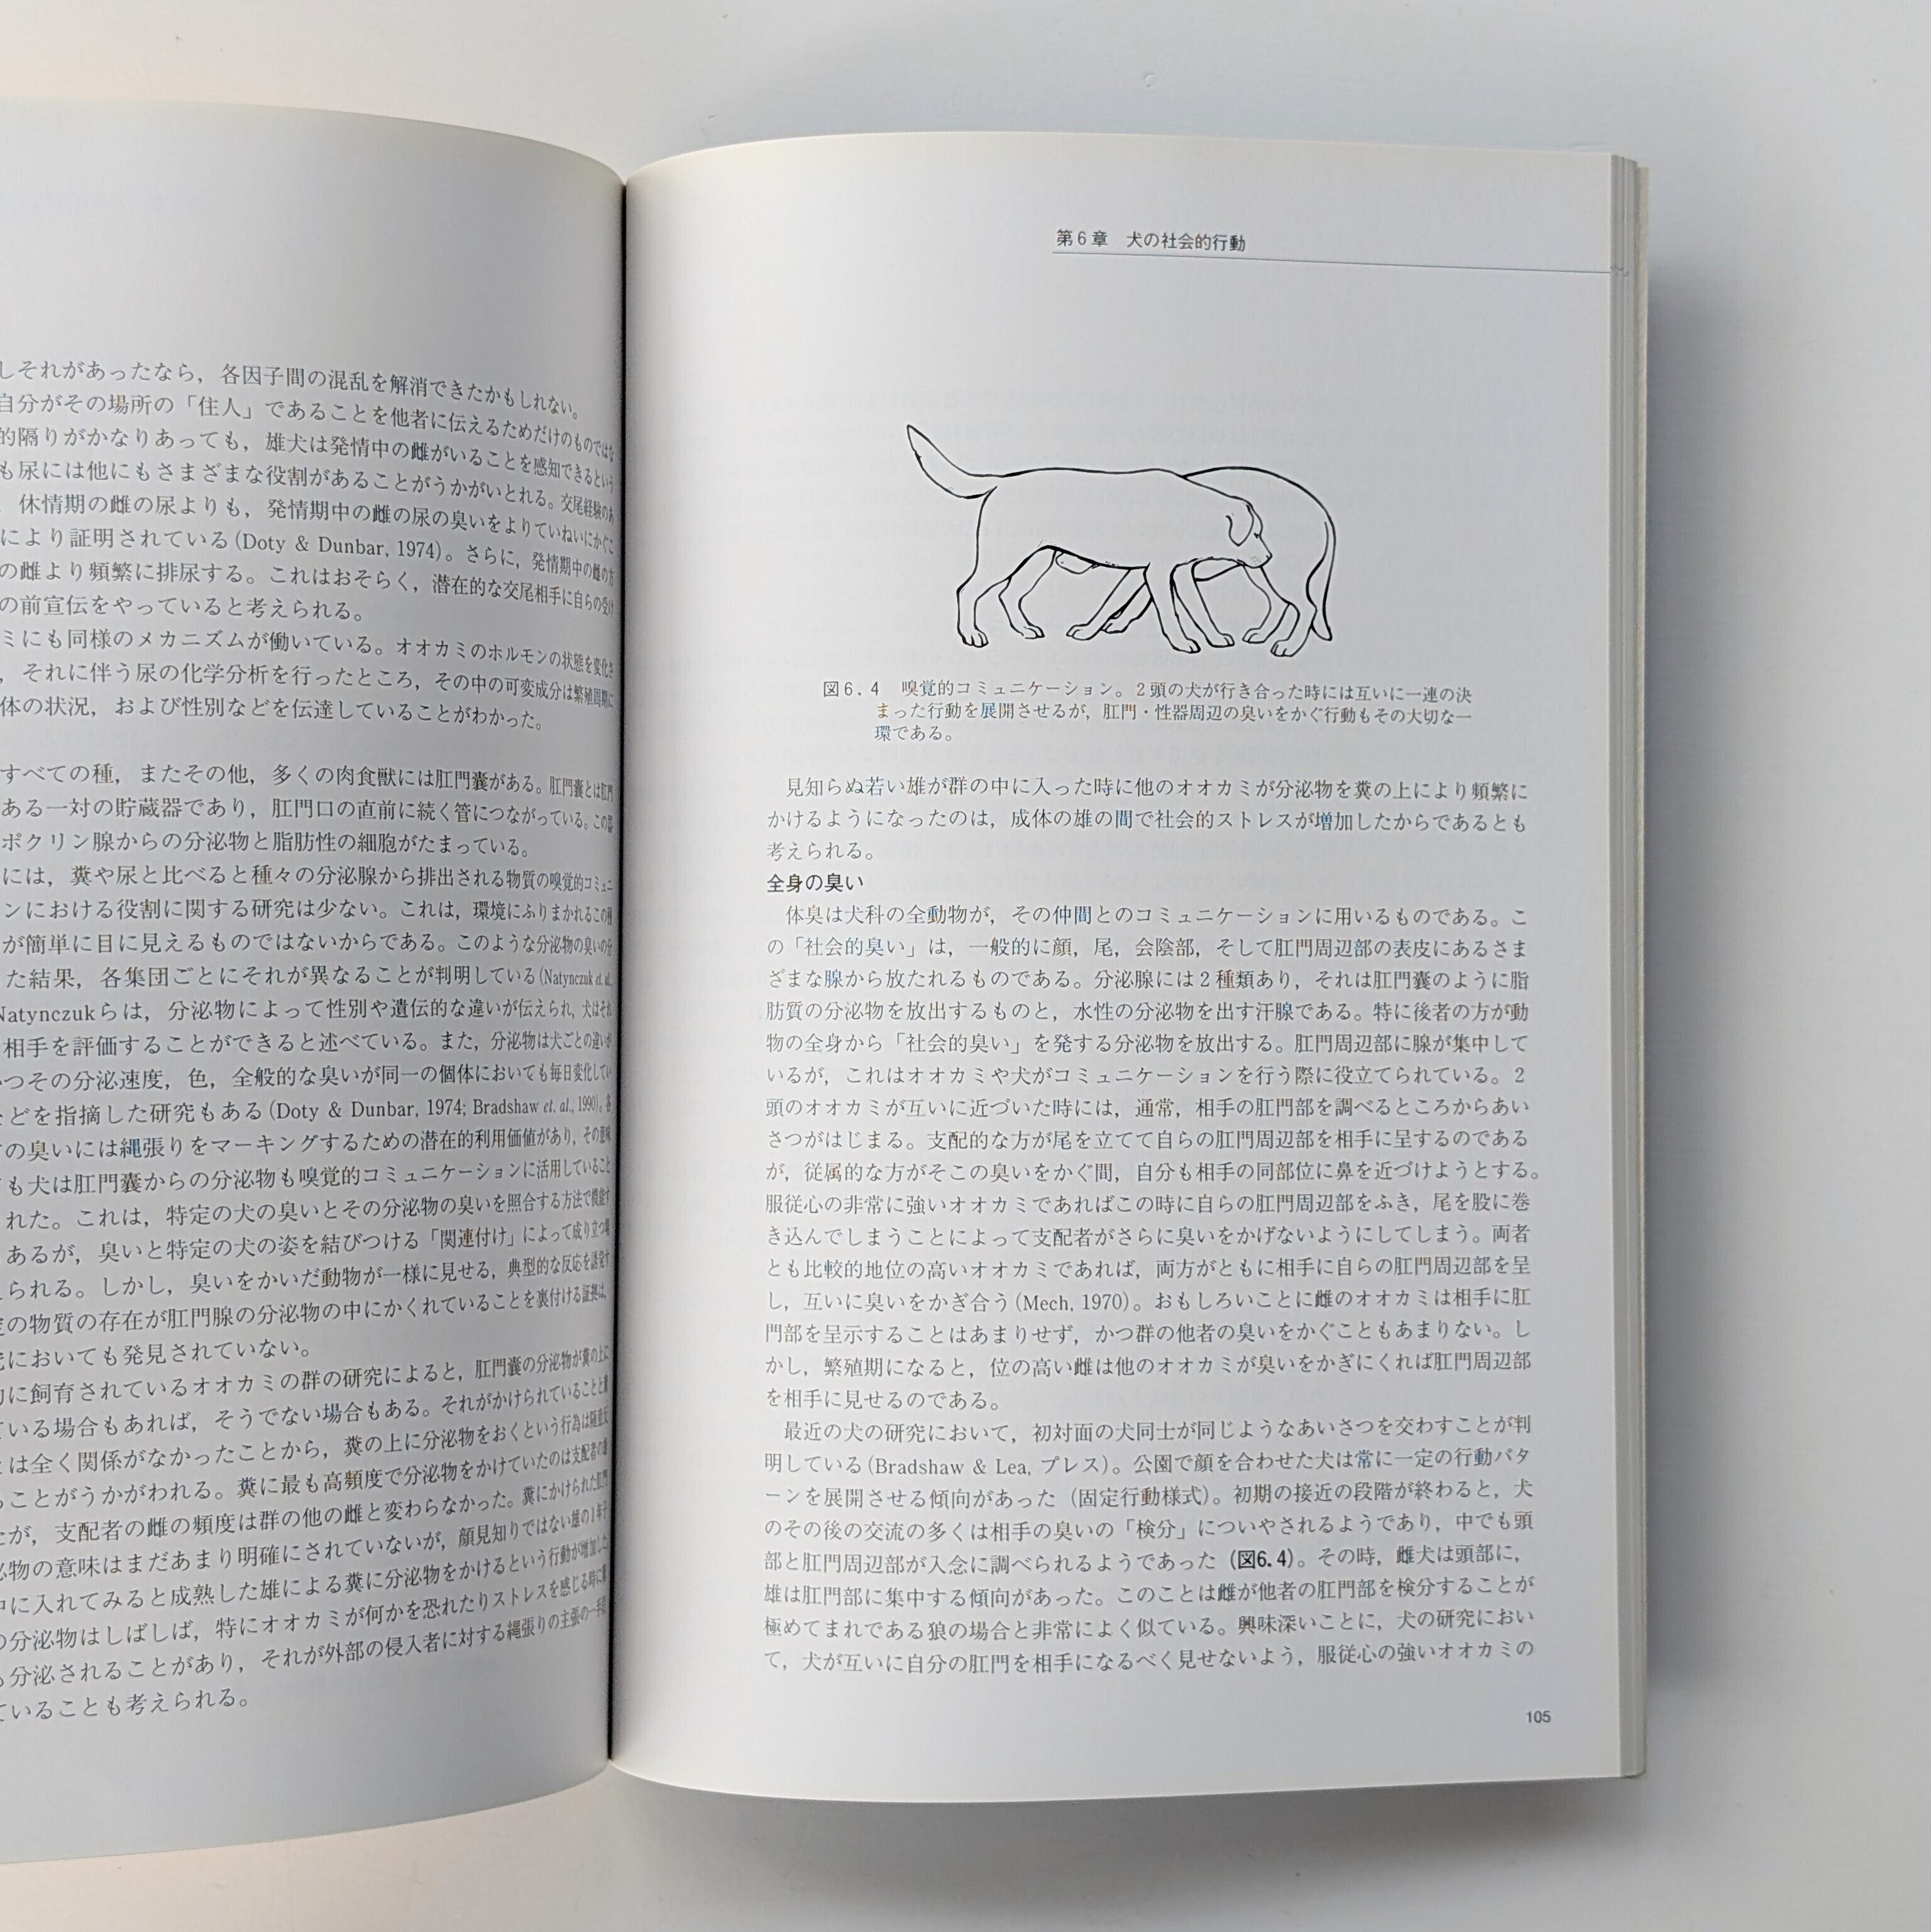 しそれがあったなら，各因子間の混乱を解消できたかもしれない。
自分がその場所の「住人」であることを他者に伝えるためだけのものではな
的隔りがかなりあっても，雄犬は発情中の雌がいることを感知できるという
も尿には他にもさまざまな役割があることがうかがいとれる。交尾経験のあ
，休情期の雌の尿よりも，発情期中の雌の尿の臭いをよりていねいにかぐこ
により証明されている(Doty & Dunbar, 1974)。さらに，発情期中の雌の方
の雌より頻繁に排尿する。これはおそらく，潜在的な交尾相手に自らの受け
の前宣伝をやっていると考えられる。
ミにも同様のメカニズムが働いている。オオカミのホルモンの状態を変化さ
，それに伴う尿の化学分析を行ったところ，その中の可変成分は繁殖周期に
体の状況，および性別などを伝達していることがわかった。
すべての種，またその他，多くの肉食獣には肛門嚢がある。肛門嚢とは肛門
ある一対の貯蔵器であり，肛門口の直前に続く管につながっている。この器
ポクリン腺からの分泌物と脂肪性の細胞がたまっている。
には，糞や尿と比べると種々の分泌腺から排出される物質の嗅覚的コミュニ
ンにおける役割に関する研究は少ない。これは，環境にふりまかれるこの種
が簡単に目に見えるものではないからである。このような分泌物の臭いの分
た結果，各集団ごとにそれが異なることが判明している(Natynczuk et. al.,
Natynczukらは，分泌物によって性別や遺伝的な違いが伝えられ，犬はそれ
相手を評価することができると述べている。また，分泌物は犬ごとの違いが
つその分泌速度，色，全般的な臭いが同一の個体においても毎日変化してい
などを指摘した研究もある(Doty & Dunbar, 1974; Bradshaw et. al., 1990)。各
の臭いには縄張りをマーキングするための潜在的利用価値があり，その意味
も犬は肛門嚢からの分泌物も嗅覚的コミュニケーションに活用していること
れた。これは，特定の犬の臭いとその分泌物の臭いを照合する方法で機能す
あるが，臭いと特定の犬の姿を結びつける「関連付け」によって成り立つ場
られる。しかし，臭いをかいだ動物が一様に見せる，典型的な反応を誘発す
の物質の存在が肛門腺の分泌物の中にかくれていることを裏付ける証拠は，
においても発見されていない。
に飼育されているオオカミの群の研究によると，肛門嚢の分泌物が糞の上に
ている場合もあれば，そうでない場合もある。それがかけられていることと糞
とは全く関係がなかったことから，糞の上に分泌物をおくという行為は随意反
ことがうかがわれる。糞に最も高頻度で分泌物をかけていたのは支配者の雄
たが，支配者の雌の頻度は群の他の雌と変わらなかった。糞にかけられた肛門
泌物の意味はまだあまり明確にされていないが，顔見知りではない雄の1年子
中に入れてみると成熟した雄による糞に分泌物をかけるという行動が増加した。
の分泌物はしばしば，特にオオカミが何かを恐れたりストレスを感じる時に糞
も分泌されることがあり，それが外部の侵入者に対する縄張りの主張の一手段
ていることも考えられる。
第6章　犬の社会的行動
図6.4　嗅覚的コミュニケーション。2頭の犬が行き合った時には互いに一連の決
まった行動を展開させるが，肛門・性器周辺の臭いをかぐ行動もその大切な一
環である。
見知らぬ若い雄が群の中に入った時に他のオオカミが分泌物を糞の上により頻繁に
かけるようになったのは，成体の雄の間で社会的ストレスが増加したからであるとも
考えられる。
全身の臭い
体臭は犬科の全動物が，その仲間とのコミュニケーションに用いるものである。こ
の「社会的臭い」は，一般的に顔，尾，会陰部，そして肛門周辺部の表皮にあるさま
ざまな腺から放たれるものである。分泌腺には2種類あり，それは肛門嚢のように脂
肪質の分泌物を放出するものと，水性の分泌物を出す汗腺である。特に後者の方が動
物の全身から「社会的臭い」を発する分泌物を放出する。肛門周辺部に腺が集中して
いるが，これはオオカミや犬がコミュニケーションを行う際に役立てられている。2
頭のオオカミが互いに近づいた時には，通常，相手の肛門部を調べるところからあい
さつがはじまる。支配的な方が尾を立てて自らの肛門周辺部を相手に呈するのである
が，従属的な方がそこの臭いをかぐ間，自分も相手の同部位に鼻を近づけようとする。
服従心の非常に強いオオカミであればこの時に自らの肛門周辺部をふき，尾を股に巻
き込んでしまうことによって支配者がさらに臭いをかげないようにしてしまう。両者
とも比較的地位の高いオオカミであれば，両方がともに相手に自らの肛門周辺部を呈
し，互いに臭いをかぎ合う(Mech, 1970)。おもしろいことに雌のオオカミは相手に肛
門部を呈示することはあまりせず，かつ群の他者の臭いをかぐこともあまりない。し
かし，繁殖期になると，位の高い雌は他のオオカミが臭いをかぎにくれば肛門周辺部
を相手に見せるのである。
最近の犬の研究において，初対面の犬同士が同じようなあいさつを交わすことが判
明している(Bradshaw & Lea, プレス)。公園で顔を合わせた犬は常に一定の行動パタ
ーンを展開させる傾向があった（固定行動様式）。初期の接近の段階が終わると，犬
のその後の交流の多くは相手の臭いの「検分」についやされるようであり，中でも頭
部と肛門周辺部が入念に調べられるようであった（図6.4）。その時，雌犬は頭部に，
雄は肛門部に集中する傾向があった。このことは雌が他者の肛門部を検分することが
極めてまれである狼の場合と非常によく似ている。興味深いことに，犬の研究におい
て，犬が互いに自分の肛門を相手になるべく見せないよう，服従心の強いオオカミの
105